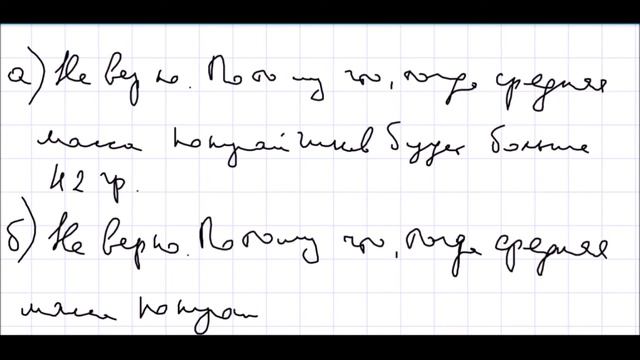 а) Не верно. Потому что, тогда средняя
масса попугайчиков будет больше
42 гр.
б) Не верно. Потому что, тогда средняя
масса попуга